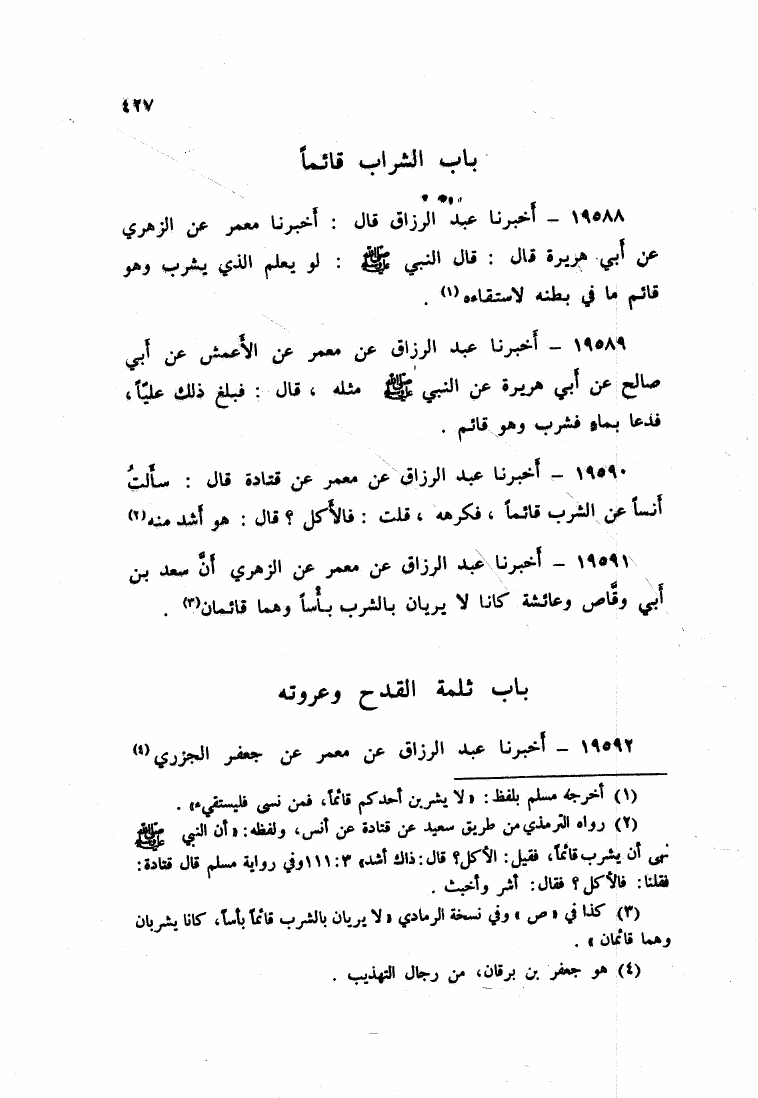 ٤٢٧
باب الشراب قائماً
١٩٥٨٨ – أَخبرنا عبد الرزاق قال : أَخبرنا معمر عن الزهري
عن أَبي هريرة قال : قال النبي ﷺ : لو يعلم الذي يشرب وهو
قائم ما في بطنه لاستقاءه(١) .
١٩٥٨٩ – أَخبرنا عبد الرزاق عن معمر عن الأَعمش عن أَبي
صالح عن أَبي هريرة عن النبي ﷺ مثله ، قال : فبلغ ذلك عليّاً،
فدعا بماءٍ فشرب وهو قائم .
١٩٥٩٠ – أَخبرنا عبد الرزاق عن معمر عن قتادة قال : سأَلتُ
أَنساً عن الشرب قائماً ، فكرهه ، قلت : فالأَكل ؟ قال : هو أَشد منه(٢)
١٩٥٩١ – أَخبرنا عبد الرزاق عن معمر عن الزهري أَنَّ سعد بن
أَبي وقَّاص وعائشة كانا لا يريان بالشرب بأْساً وهما قائمان(٣) .
باب ثلمة القدح وعروته
١٩٥٩٢ – أَخبرنا عبد الرزاق عن معمر عن جعفر الجزري(٤)
(١) أخرجه مسلم بلفظ : «لا يشربن أحدكم قائماً، فمن نسى فليستقيء» .
(٢) رواه الترمذي من طريق سعيد عن قتادة عن أنس، ولفظه: «أن النبي ﷺ
نهى أن يشرب قائماً، فقيل: الأكل؟ قال: ذاك أشد» ٣: ١١١ وفي رواية مسلم قال قتادة:
فقلنا: فالأكل؟ فقال: أشر وأخبث .
(٣) كذا في «ص» وفي نسخة الرمادي «لا يريان بالشرب قائماً بأساً، كانا يشربان
وهما قائمان» .
(٤) هو جعفر بن برقان، من رجال التهذيب .